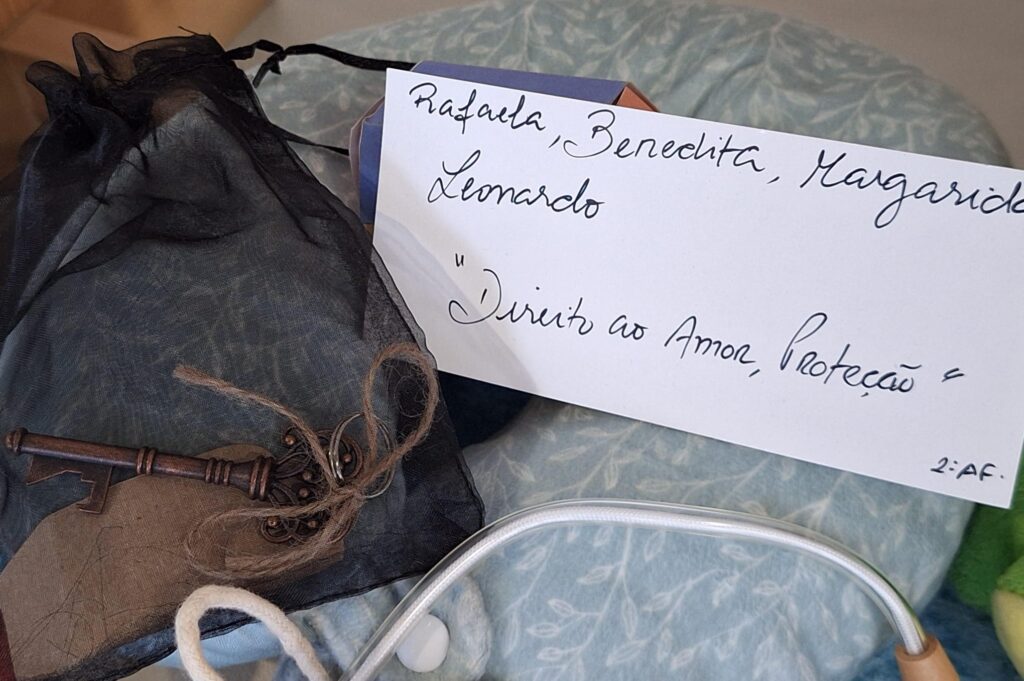 Rafaela, Benedita, Margarida
Leonardo
"Direito ao Amor, Proteção"
2º AF.